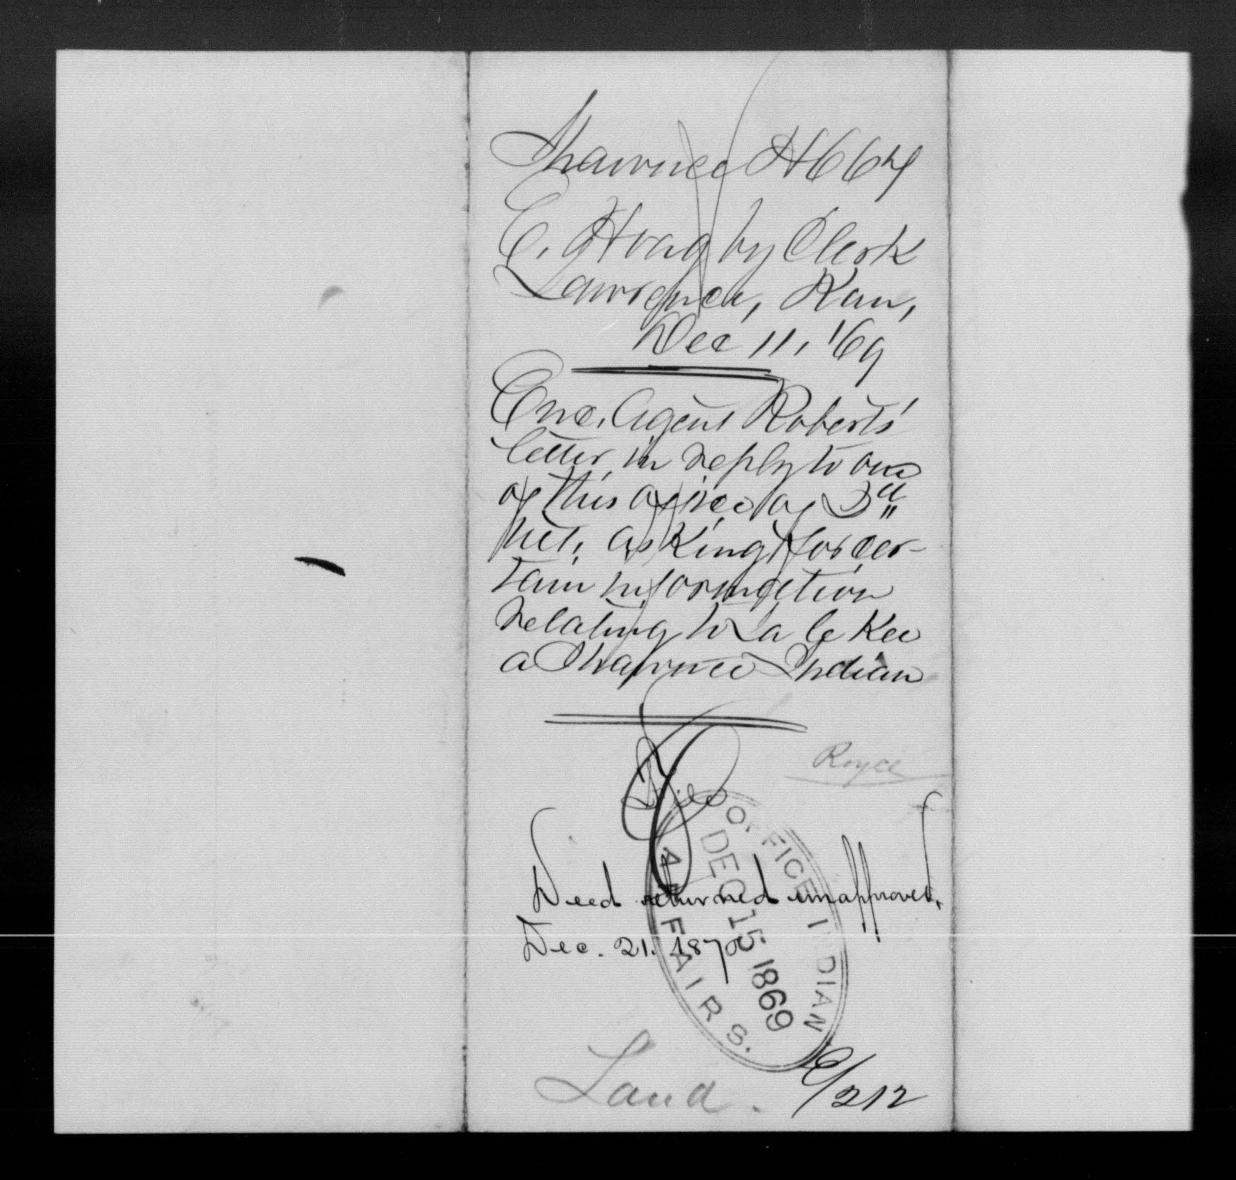 Shawnee H 664
E. Hoag by Clerk
Lawrence, Kan,
Dec 11, '69
Enc. Agent Roberts'
letter in reply to one
of this office of 3"
ult, asking for cer-
tain information
relating to La le Kee
a Shawnee Indian
Royce
File
OFFICE INDIAN AFFAIRS.
DEC 15 1869
Deed returned unapproved,
Dec. 21. 1870
Land.
/212